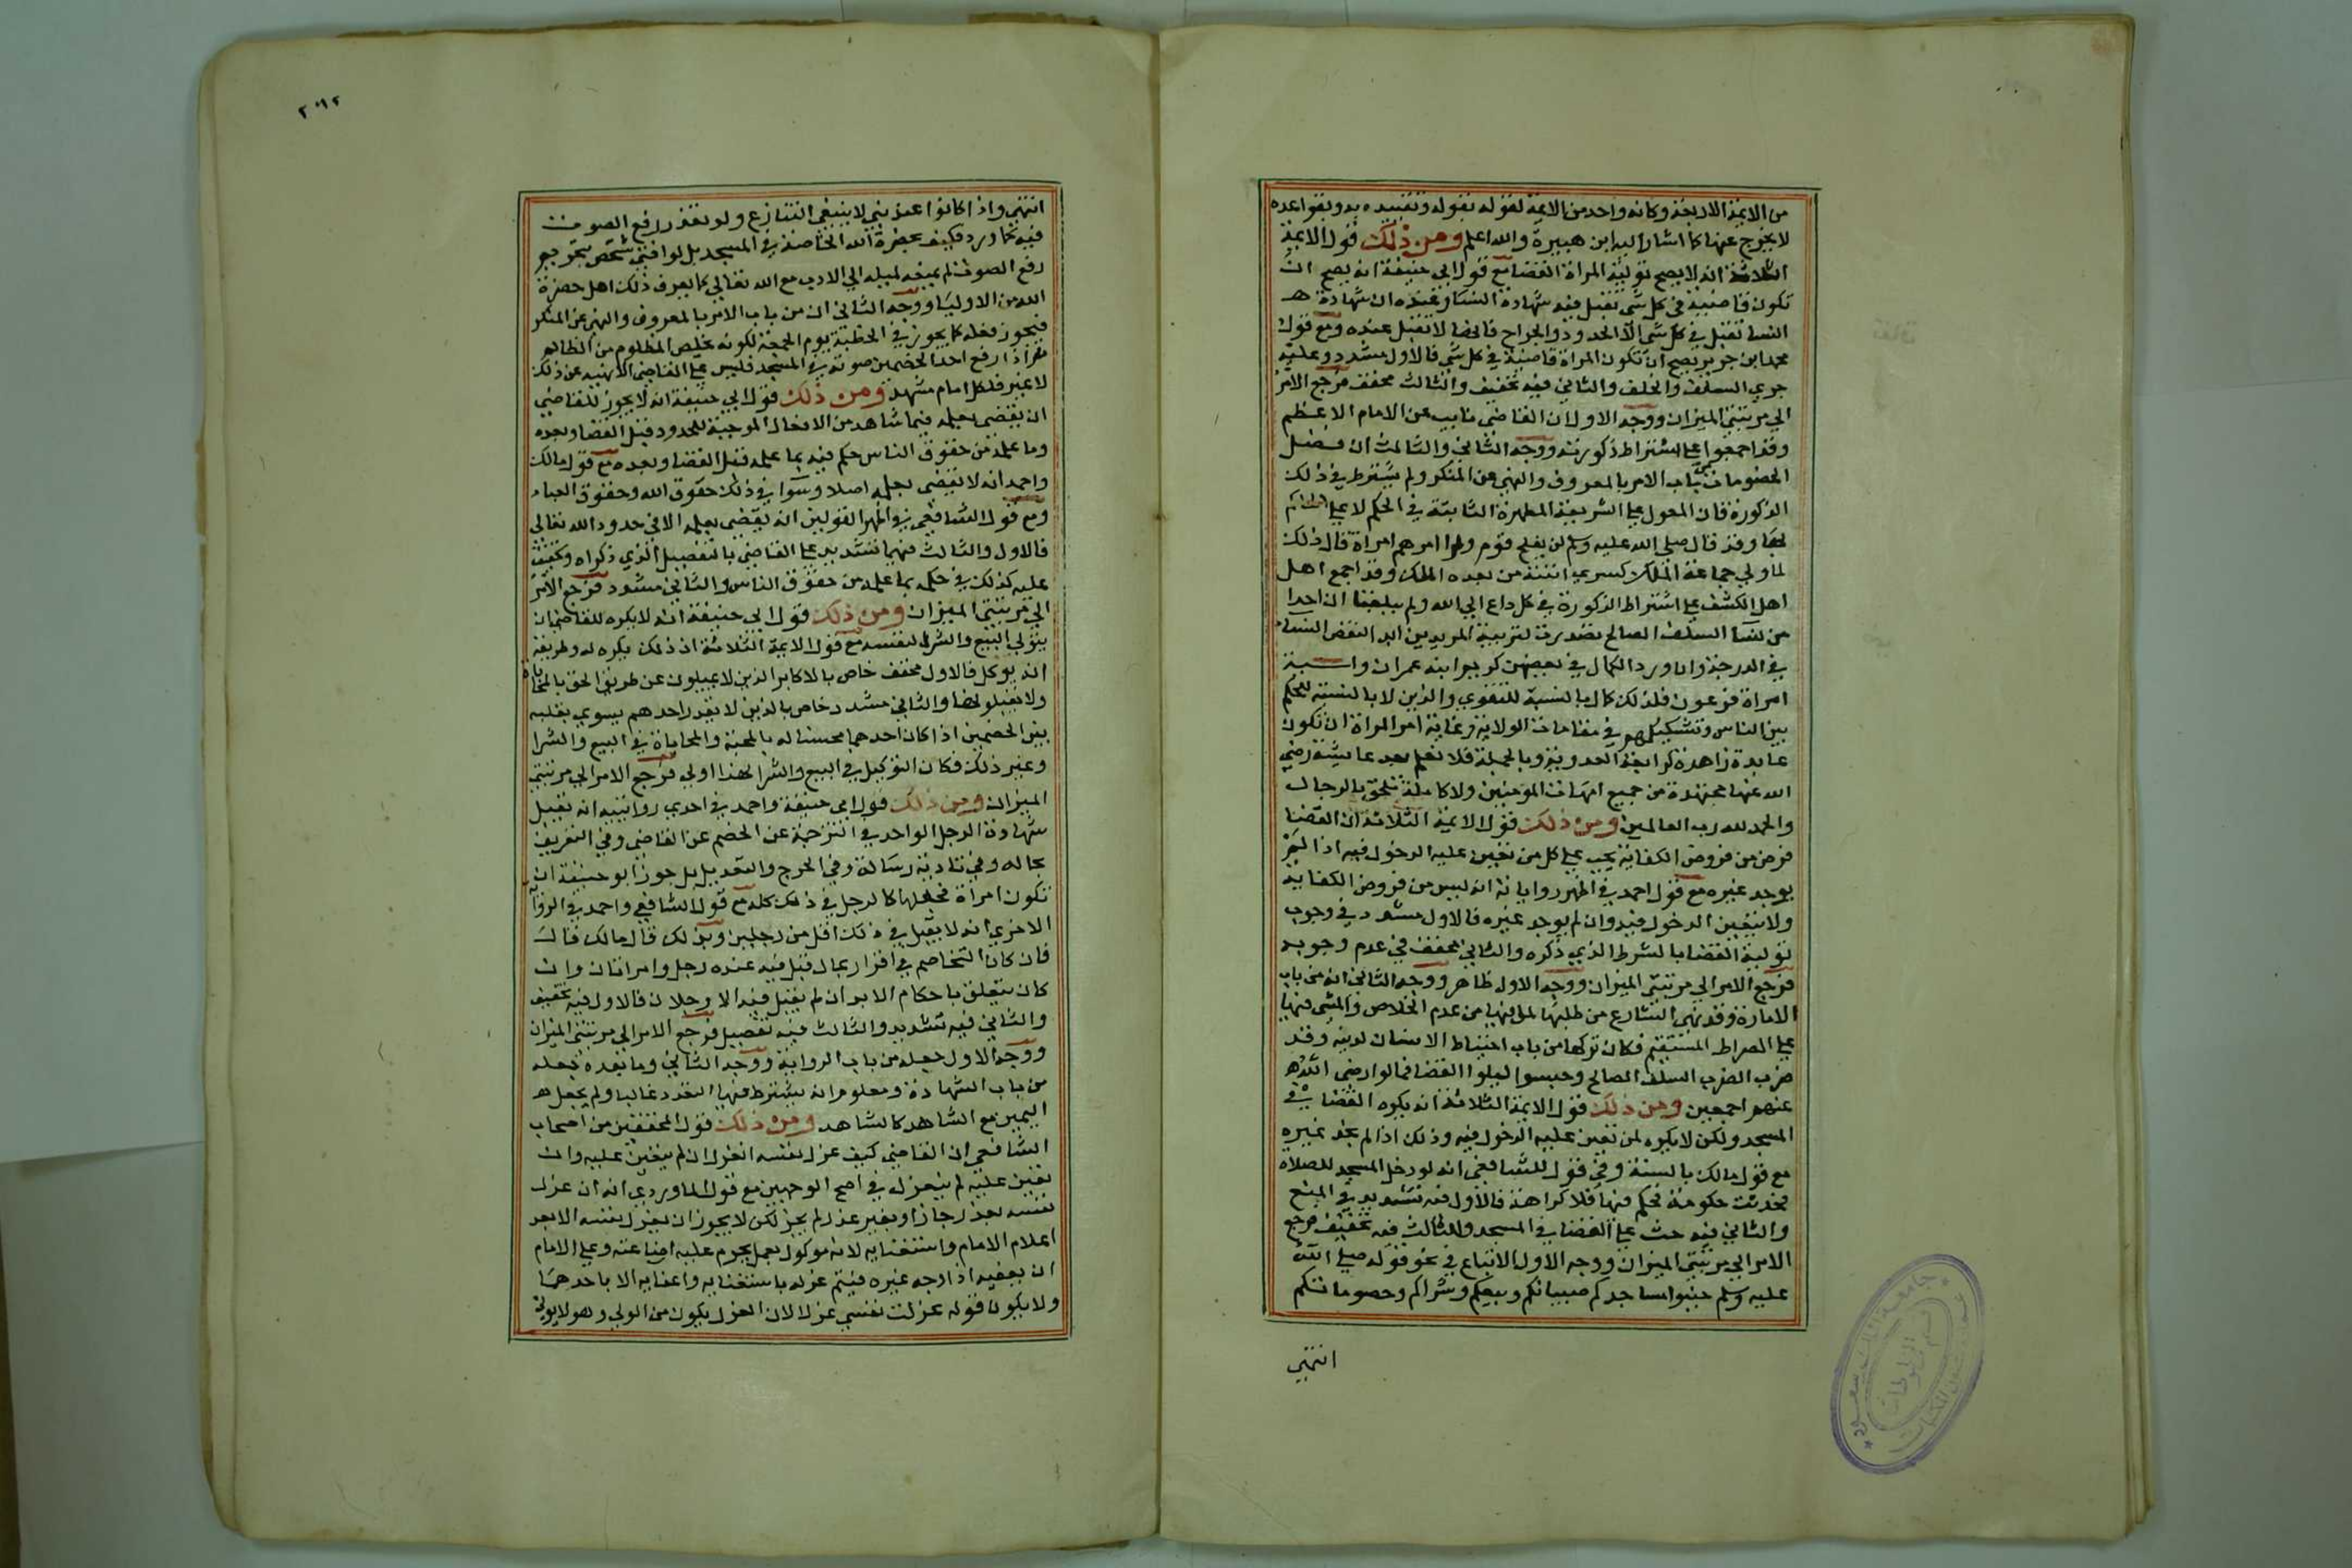 من الايمة الاربعة وكانه واحد من الايمة لقوله بقوله وتقيده به وبقواعده
لا يخرج عنها كما اشار اليه ابن هبيرة والله اعلم ومن ذلك قول الايمة
الثلاثة انه لا يصح تولية المراة القضا مع قول ابي حنيفة انه يصح ان
تكون قاضية في كل شي تقبل فيه شهادة النسا وعنده ان شهادة
النسا تقبل في كل شي الا الحدود والجراح فانها لا تقبل عنده ومع قول
محمد ابن جرير يصح ان تكون المراة قاضية في كل شي فالاول مشدد وعليه
جري السلف والخلف والثاني فيه تخفيف والثالث مخفف فرجع الامر
الي مرتبتي الميزان ووجه الاول ان القاضي نايب عن الامام الاعظم
وقد اجمعوا علي اشتراط ذكورته ووجه الثاني والثالث ان فصل
الخصومات من باب الامر بالمعروف والنهي عن المنكر ولم يشترط في ذلك
الذكورة فان المعول علي الشريعة المطهرة الثابتة في الحكم لا علي الحاكم
بها وقد قال صلي الله عليه وسلم لن يفلح قوم ولوا امرهم امراة قال ذلك
لما ولي جماعة الملك كسري ابنته من بعده الملك وقد اجمع اهل
اهل الكشف علي اشتراط الذكورة في كل داع الي الله ولم يبلغنا ان احدا
من نسا السلف الصالح تصدرت لتربية المريدين ابدا لنقص النسا
في الدرجة وان ورد الكمال في بعضهن كمريم ابنة عمران واسية
امراة فرعون فذلك كمال بالنسبة للتقوي والدين لا بالنسبة للحكم
بين الناس وتسليكهم في مقامات الولاية وغاية امر المراة ان تكون
عابدة زاهدة كرابعة العدوية وبالجملة فلا نعلم بعد عايشة رضي
الله عنها مجتهدة من جميع امهات المومنين ولا كاملة تلحق بالرجال
والحمد لله رب العالمين ومن ذلك قول الايمة الثلاثة ان القضا
فرض من فروض الكفاية يجب علي كل من تعين عليه الدخول فيه اذا لم
يوجد غيره مع قول احمد في اظهر رواياته انه ليس من فروض الكفاية
ولا يتعين الدخول فيه وان لم يوجد غيره فالاول مشدد في وجوب
تولية القضا بالشرط الذي ذكره والثاني مخفف في عدم وجوبه
فرجع الامر الي مرتبتي الميزان ووجه الاول ظاهر ووجه الثاني انه من باب
الامارة وقد نهي الشارع من طلبها لما فيها من عدم الخلاص والمشي فيها
علي الصراط المستقيم فكان تركها من باب احتياط الانسان لدينه وقد
ضرب السلف الصالح وحبسوا ليلوا القضا فما لوا رضي الله
عنهم اجمعين ومن ذلك قول الايمة الثلاثة انه يكره القضا في
المسجد ولكن لا يكره لمن تعين عليه الدخول فيه وذلك اذا لم يجد غيره
مع قول مالك بالسنة وفي قول للشافعي انه لو دخل المسجد للصلاه
فحدثت حكومة فحكم فيها فلا كراهة فالاول فيه تشديد في المنع
والثاني فيه حث علي القضا في المسجد والثالث فيه تخفيف فرجع
الامر الي مرتبتي الميزان ووجه الاول الاتباع في نحو قوله صلي الله
عليه وسلم جنبوا مساجدكم صبيانكم وبيعكم وشراكم وخصوماتكم
انتهي
انتهي واذا كانوا عند نبي لا ينبغي التنازع ولو تعذر رفع الصوت
فيه كما ورد فكيف بحضرة الله الخاصة في المسجد بل لو افتي شخص بتحريم
رفع الصوت لم يمنعه لميله الي الادب مع الله تعالي كما يعرف ذلك اهل حضرة
الله من الاوليا ووجه الثاني انه من باب الامر بالمعروف والنهي عن المنكر
فيجوز فعله كما يجوز في الخطبة يوم الجمعة لكونه يخلص المظلوم من الظالم
ثم اذا رفع احد الخصمين صوته في المسجد فليس علي القاضي الا نهيه عن ذلك
لا غير فلكل امام مشهد ومن ذلك قول ابي حنيفة انه لا يجوز للقاضي
ان يقضي بعلمه فيما شاهد من الافعال الموجبة للحدود قبل القضا وبعده
وما علمه من حقوق الناس حكم فيه بما علمه قبل القضا وبعده مع قول مالك
واحمد انه لا يقضي بعلمه اصلا وسوا في ذلك حقوق الله وحقوق العباد
ومع قول الشافعي في اظهر القولين انه يقضي بعلمه الا في حدود الله تعالي
فالاول والثالث فيهما تشديد علي القاضي بالتفصيل الذي ذكراه وتخفيف
عليه كذلك في حكمه بما علمه من حقوق الناس والثاني مشدد فرجع الامر
الي مرتبتي الميزان ومن ذلك قول ابي حنيفة انه لا يكره للقاضي ان
يتولي البيع والشرا لنفسه مع قول الايمة الثلاثة ان ذلك يكره له وطريقه
انه يوكل فالاول مخفف خاص بالاكابر الذين لا يميلون عن طريق الحق بالمحاباة
ولا يقبلونها والثاني مشدد خاص بالذين لا يقدر احدهم يسوي بقلبه
بين الخصمين اذا كان احدهما محسنا له بالمحبة والمحاباة في البيع والشرا
وغير ذلك فكان التوكيل في البيع والشرا لهذا اولي فرجع الامر الي مرتبتي
الميزان ومن ذلك قول ابي حنيفة واحمد في احدي روايتيه انه تقبل
شهادة الرجل الواحد في الترجمة عن الخصم عن القاضي وفي التعريف
بحاله وفي تادية رسالة وفي الجرح والتعديل بل جوز ابو حنيفة ان
تكون امراة فجعلها كالرجل في ذلك كله مع قول الشافعي واحمد في الرواية
الاخري انه لا يقبل في ذلك اقل من رجلين وبذلك قال مالك قال
فان كان التخاصم في اقرار بمال قبل فيه عنده رجل وامراتان وان
كان يتعلق باحكام الابدان لم يقبل فيه الا رجلان فالاول فيه تخفيف
والثاني فيه تشديد والثالث فيه تفصيل فرجع الامر الي مرتبتي الميزان
ووجه الاول جعله من باب الرواية ووجه الثاني وما بعده جعله
من باب الشهادة ومعلوم انه يشترط فيها التعدد غالبا ولم يجعل
اليمين مع الشاهد كالشاهد ومن ذلك قول المحققين من اصحاب
الشافعي ان القاضي كيف عزل نفسه انعزل ان لم يتعين عليه وان
تعين عليه لم ينعزل في اصح الوجهين مع قول الماوردي انه ان عزل
نفسه بعذر جاز او بغير عذر لم يجز لكن لا يجوز ان يعزل نفسه الا بعد
اعلام الامام واستعفايه لانه موكول بعمل يحرم عليه اضاعته وعلي الامام
ان يعفيه اذا وجد غيره فيتم عزله باستعفايه واعفايه لا باحدهما
ولا يكون قوله عزلت نفسي عزلا لان العزل يكون من المولي وهو لا يولي